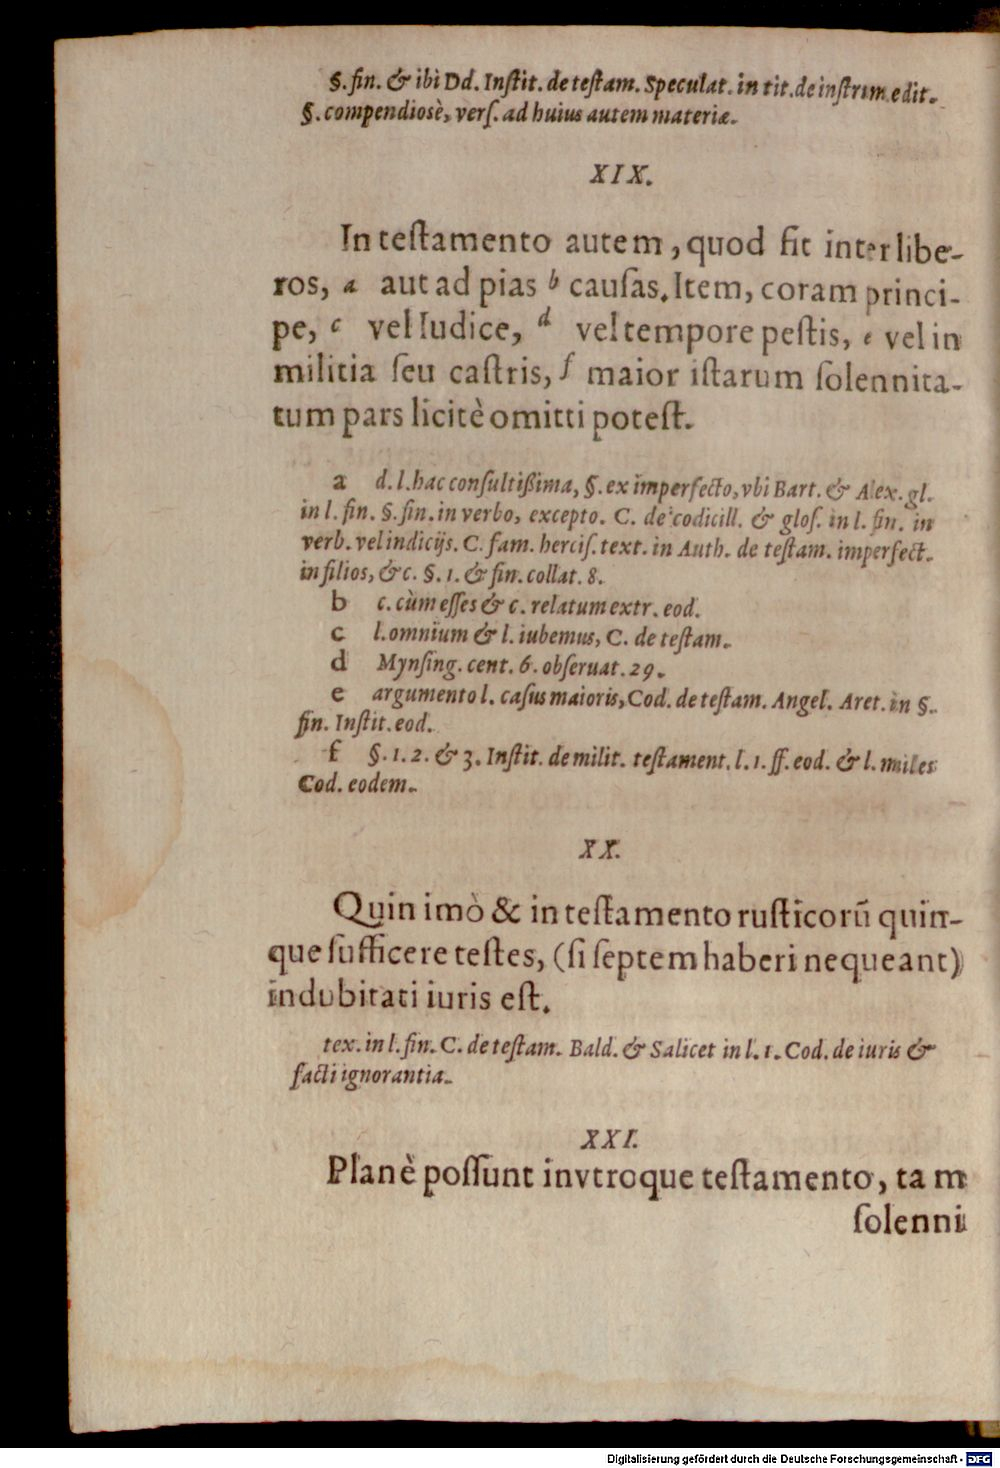 §. fin. & ibi Dd. Inſtit. de teſtam. Speculat. in tit. de inſtrum. edit.
§. compendiosè, verſ. ad huius autem materiæ.
XIX.
In teſtamento autem, quod fit inter libe-
ros, a aut ad pias b cauſas. Item, coram princi-
pe, c vel Iudice, d vel tempore peſtis, e vel in
militia ſeu caſtris, f maior iſtarum ſolennita-
tum pars licitè omitti poteſt.
a d. l. hac conſultißima, §. ex imperfecto, vbi Bart. & Alex. gl.
in l. fin. §. fin. in verbo, excepto. C. de codicill. & gloſ. in l. fin. in
verb. vel indicijs. C. fam. herciſ. text. in Auth. de teſtam. imperfect.
in filios, & c. §. 1. & fin. collat. 8.
b c. cùm eſſes & c. relatum extr. eod.
c l. omnium & l. iubemus, C. de teſtam.
d Mynſing. cent. 6. obſeruat. 29.
e argumento l. caſus maioris, Cod. de teſtam. Angel. Aret. in §.
fin. Inſtit. eod.
f §. 1. 2. & 3. Inſtit. de milit. teſtament. l. 1. ff. eod. & l. miles
Cod. eodem.
XX.
Quin imò & in teſtamento ruſticorũ quin-
que ſufficere teſtes, (ſi ſeptem haberi nequeant)
indubitati iuris eſt.
tex. in l. fin. C. de teſtam. Bald. & Salicet in l. 1. Cod. de iuris &
facti ignorantia.
XXI.
Planè poſſunt in vtroque teſtamento, tam
ſolenni
Digitalisierung gefördert durch die Deutsche Forschungsgemeinschaft - DFG